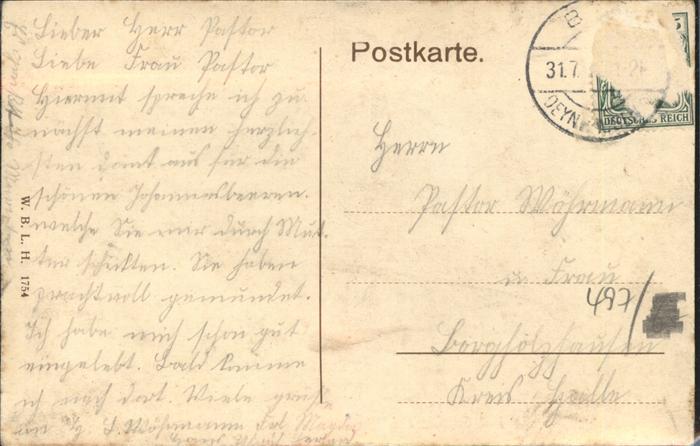 Lieber Herr Pastor
Liebe Frau Pastor
Hiermit spreche ich zu
nächst meinen herzlich-
sten dank aus für die
schönen Johannesbeeren.
welche Sie mir durch Mut
ter schickten. Sie haben
prachtvoll gemundet.
Ich habe mich schon gut
eingelebt. Bald komme
ich nach dort. Viele
Wöhrmann
W. B. L. H. 1754
Postkarte.
31.7
OEYN
DEUTSCHES REICH
Herrn
Pastor Wöhrmann
u Frau
497/
Borgholzhausen
Kreis Halle